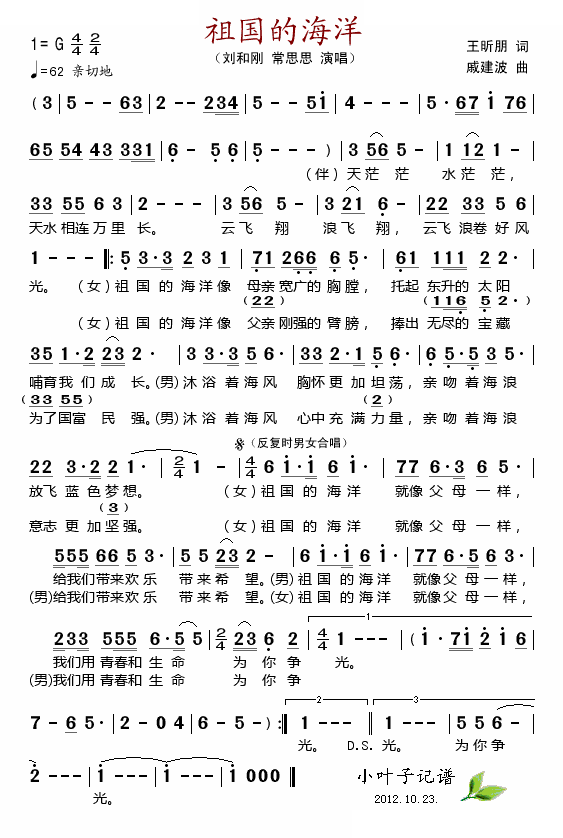 祖国的海洋
1=G 4/4 2/4
（刘和刚 常思思 演唱）
王昕朋 词
♩=62 亲切地
戚建波 曲
(3 | 5 - - 63 | 2 - - 234 | 5 - - 51 | 4 - - - | 5· 67 1 76 |
65 54 43 331 | 6 - 5 6 | 5 - - - ) | 3 56 5 - | 1 12 1 - |
（伴）天茫茫 水茫茫，
33 55 6 3 | 2 - - - | 3 56 5 - | 3 21 6 - | 22 33 5 6 |
天水相连万里长。 云飞翔 浪飞翔， 云飞浪卷好风
1 - - - ‖: 5 3·3 2 31 | 71 266 6 5· | 61 111 2 2· |
光。 （女）祖国的海洋像 母亲宽广的胸膛， 托起东升的太阳
(22) (116 5 2·)
（女）祖国的海洋像 父亲刚强的臂膀， 捧出无尽的宝藏
35 1·2 23 2· | 3 3·3 5 6· | 33 2·1 5 6· | 6 5·5 3 5· |
哺育我们成长。(男)沐浴着海风 胸怀更加坦荡，亲吻着海浪
(33 55) (2)
为了国富民强。(男)沐浴着海风 心中充满力量，亲吻着海浪
𝄋（反复时男女合唱）
22 3·2 2 1· | 2/4 1 - | 4/4 6 1·1 6 1· | 77 6·3 6 5· |
放飞蓝色梦想。 （女）祖国的海洋 就像父母一样，
(3)
意志更加坚强。 （女）祖国的海洋 就像父母一样，
555 66 5 3· | 5 5 23 2 - | 6 1·1 6 1· | 77 6·5 6 3· |
给我们带来欢乐 带来希望。(男)祖国的海洋 就像父母一样，
(男)给我们带来欢乐 带来希望。(女)祖国的海洋 就像父母一样，
1
233 555 6·5 5 | 2/4 23 6 2 | 4/4 1 - - - | (1· 71 2 1 6 |
我们用青春和生命 为你争光。
(男)我们用青春和生命 为你争
2 3
7 - 6 5· | 2 - 0 4 | 6 - 5· ) :‖ 1 - - - ‖ 1 - - - | 5 5 6 - |
光。 D.S. 光。 为你争
2 - - - | 1 - - - | 1 - - - | 1 0 0 0 ‖
光。
小叶子记谱
2012.10.23.